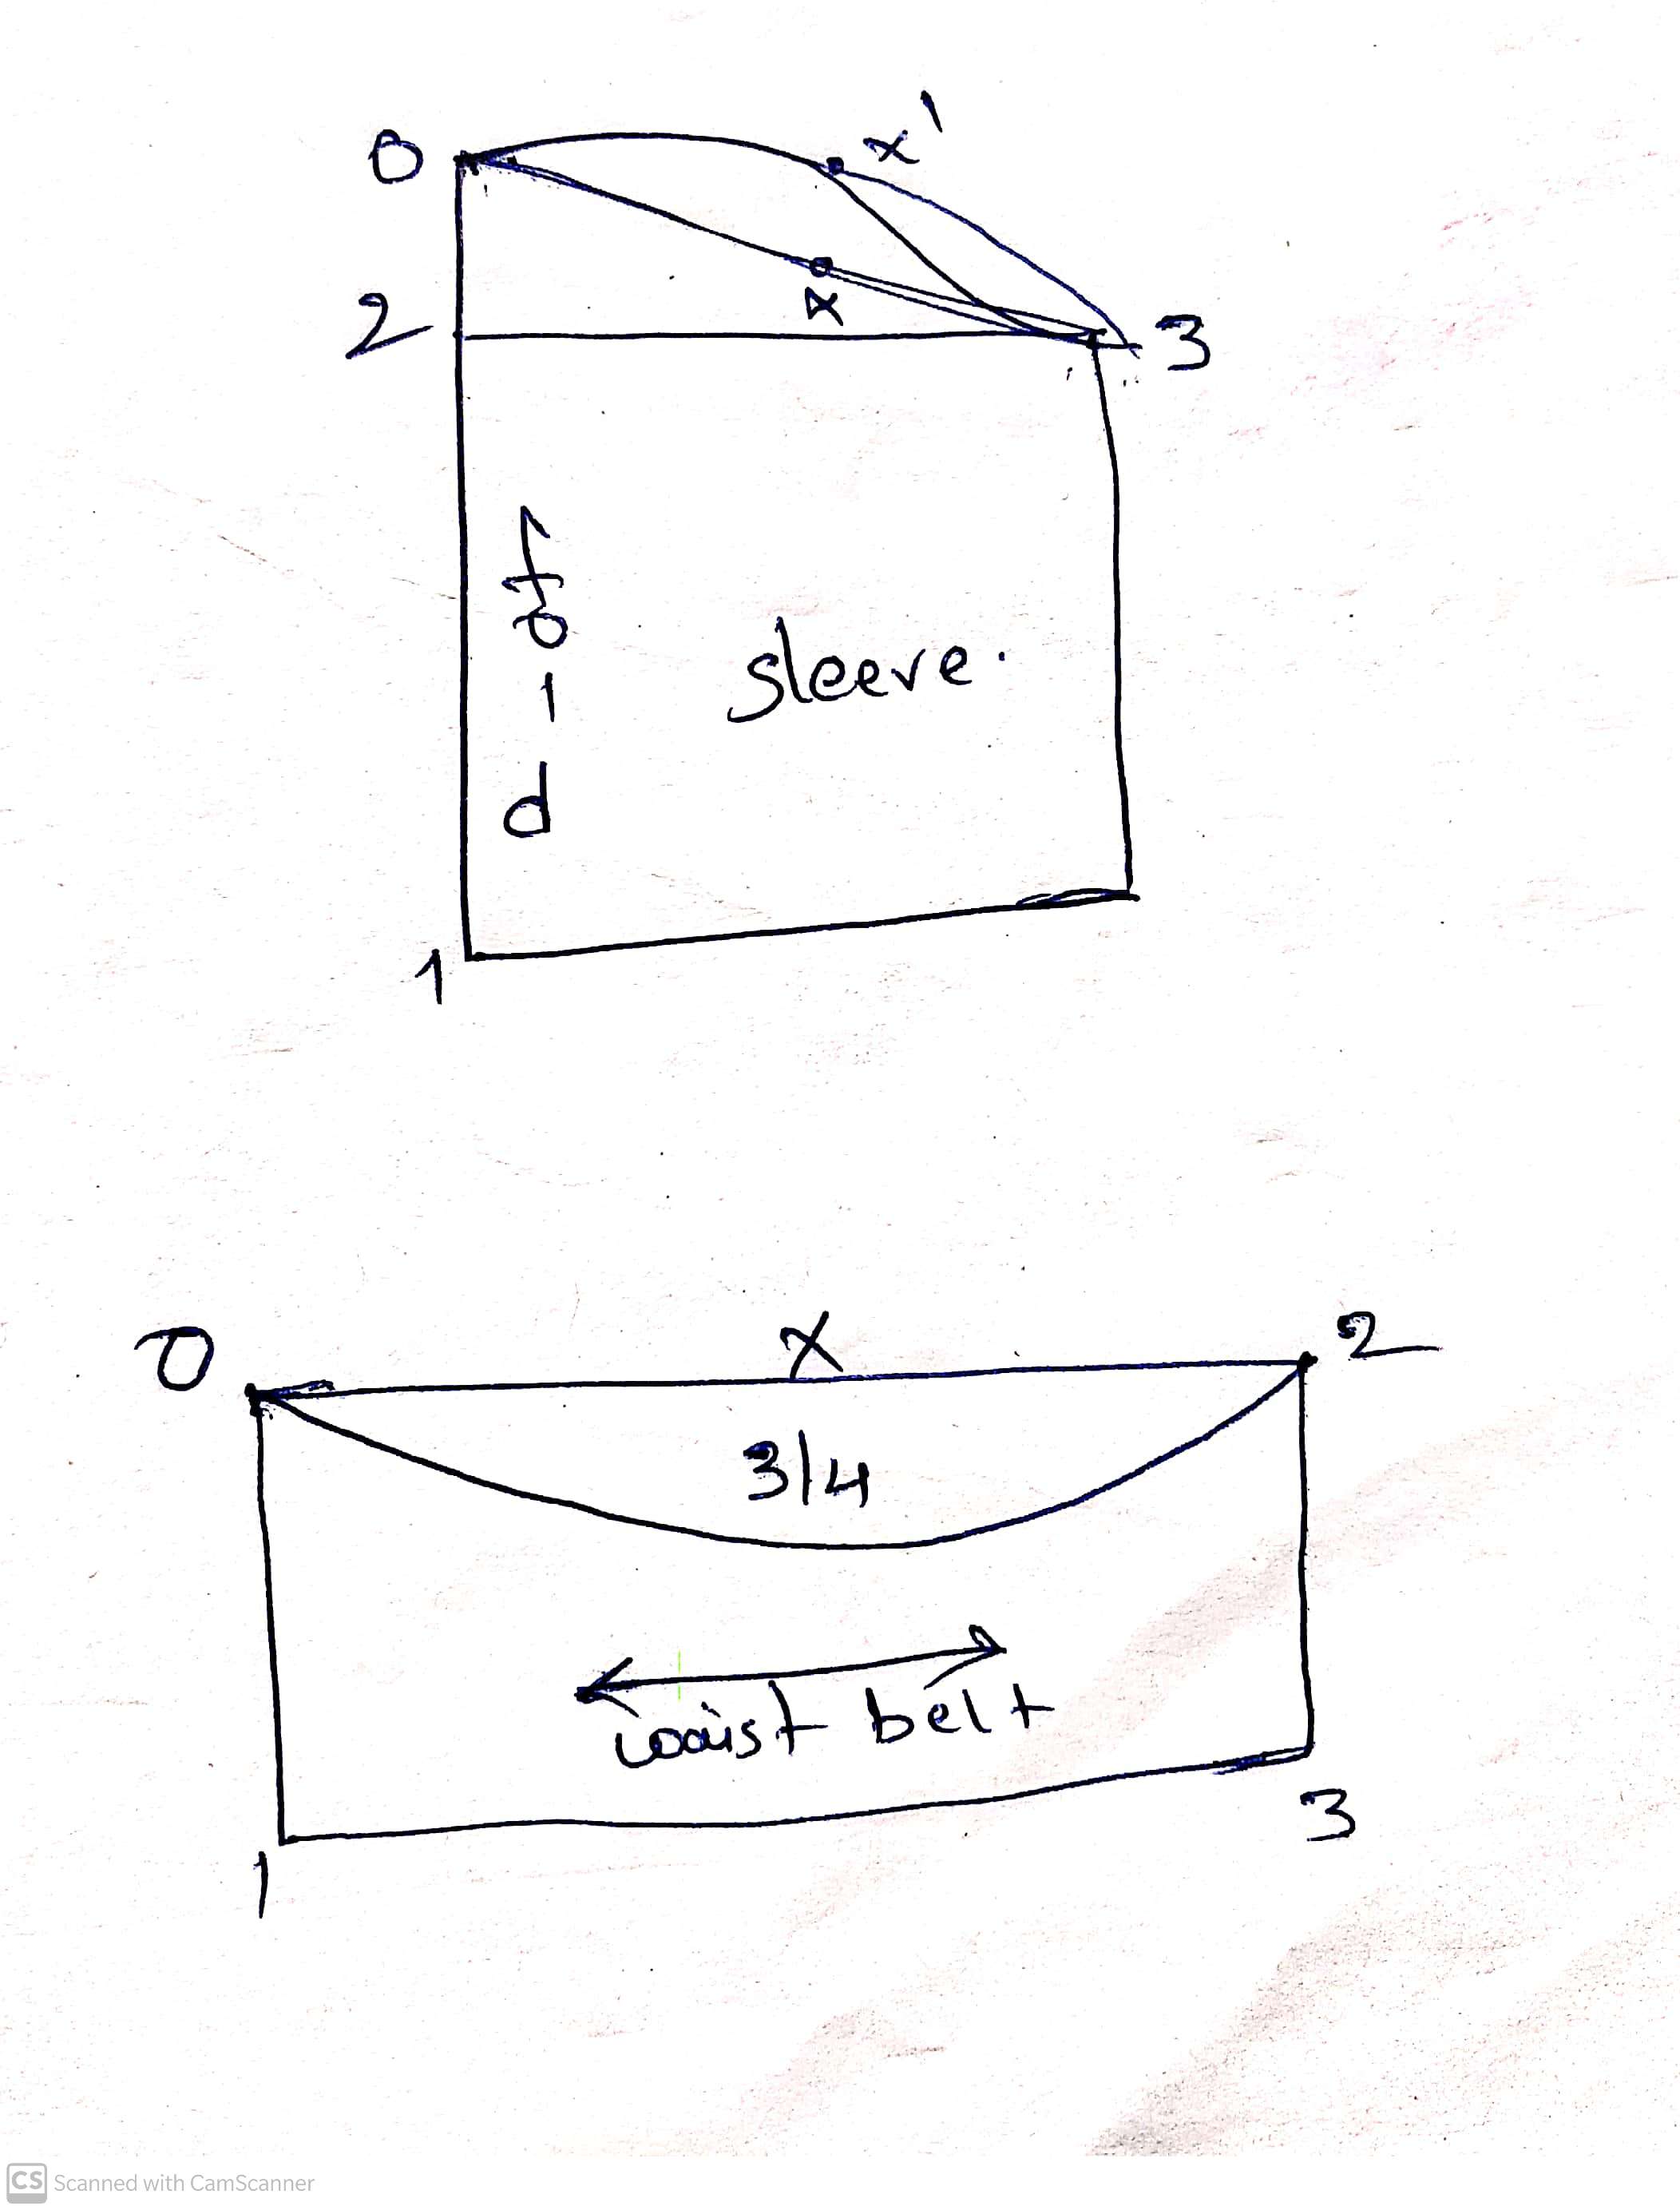 0
x'
x
2
3
f
o
l
d
sleeve.
1
0
X
2
3/4
waist belt
1
3
CS Scanned with CamScanner